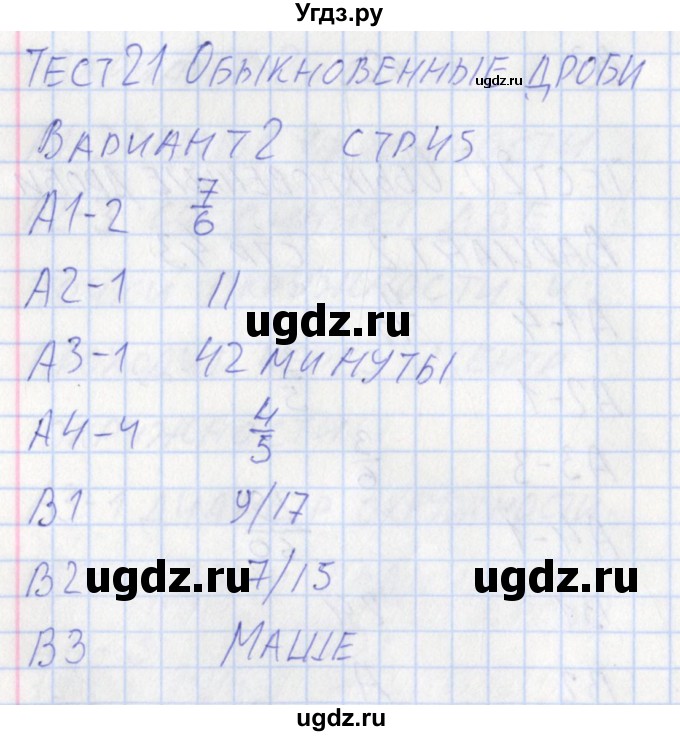 Угдз.ру
Тест 21 Обыкновенные дроби
ugdz.ru
Вариант 2 стр 45
А1-2 7/6
А2-1 11
ugdz.ru
А3-1 42 минуты
А4-4 4/5
В1 9/17
В2 7/15
ugdz.ru ugdz.ru
В3 Маше
ugdz.ru